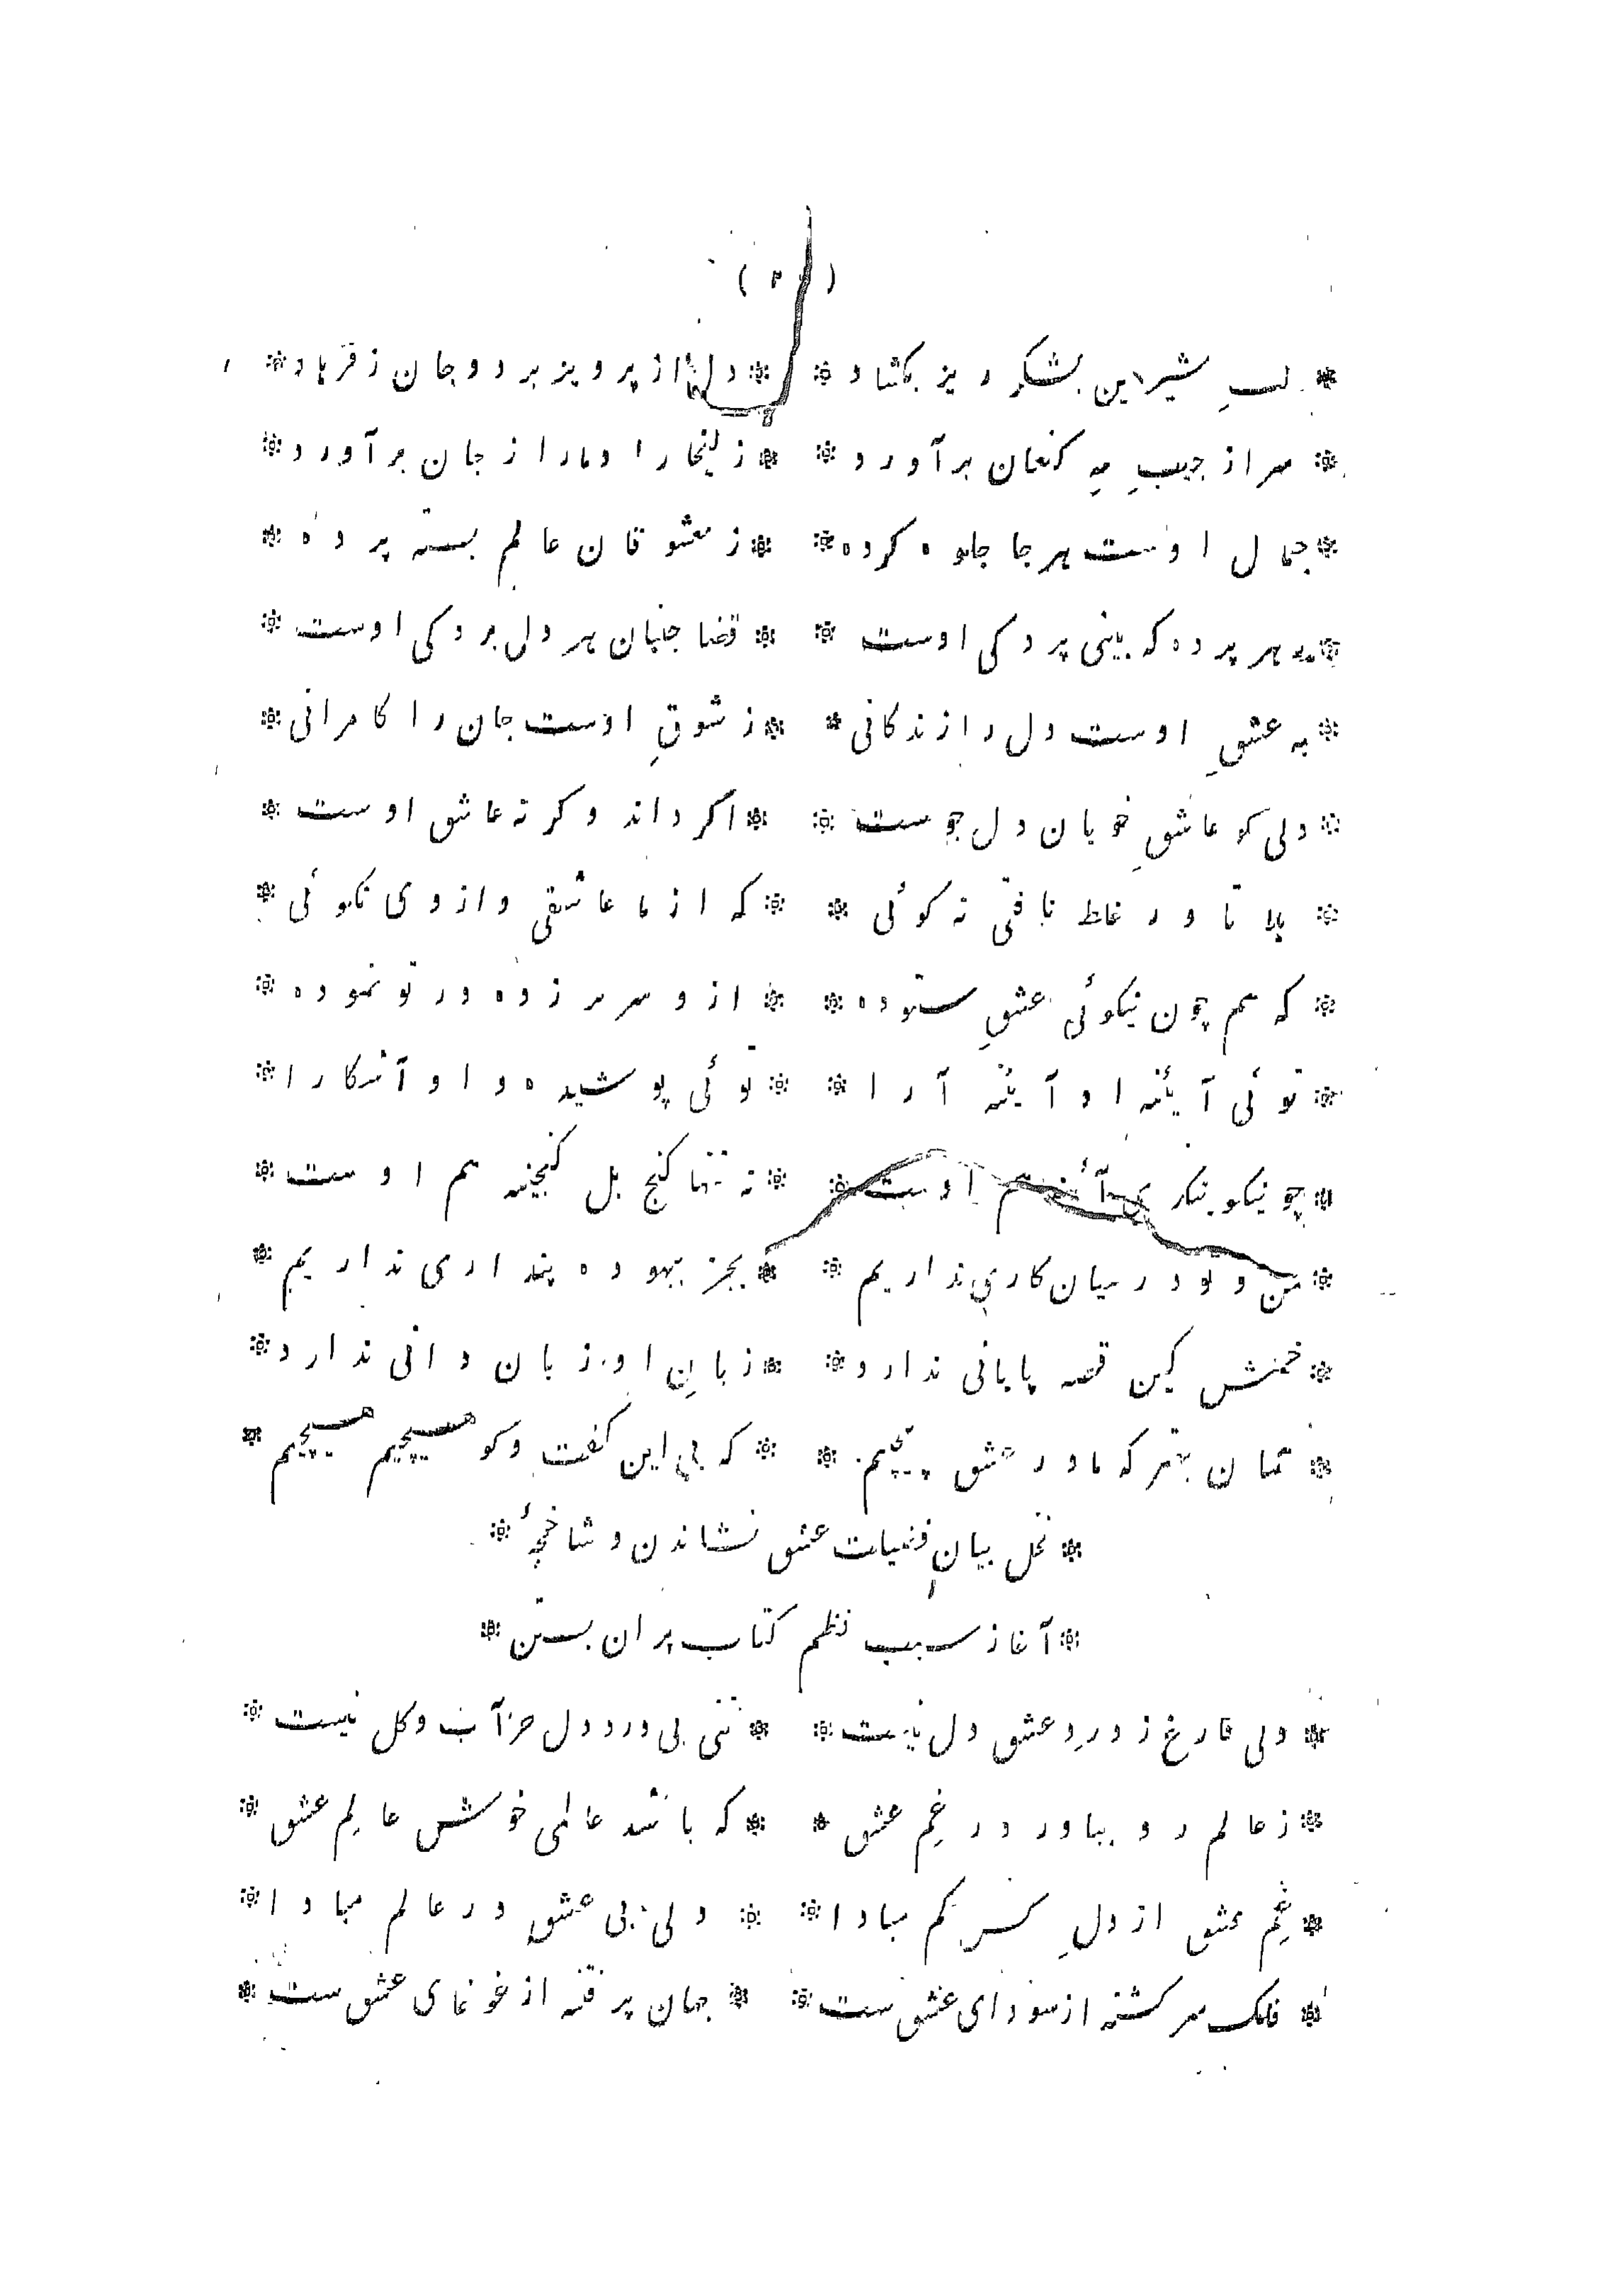 ( ۳ )
* لبِ شیرین بشکر ریز بکشاد * * دل از پرویز برد و جان ز فرهاد *
* سر از جیبِ مهِ کنعان برآورد * * زلیخا را دمار از جان برآورد *
* جمال اوست هر جا جلوه کرده * * ز معشوقان عالم بسته پرده *
* بهر پرده که بینی پردکی اوست * * قضا جنبان هر دل بردکی اوست *
* به عشقِ اوست دل را زندکانی * * ز شوقِ اوست جان را کامرانی *
* دلی کو عاشقِ خوبان دل جوست * * اکر داند وکر نه عاشق اوست *
* هلا تا در غلط نافتی نه کوئی * * که از ما عاشقی و از وی نکوئی *
* که هم چون نیکوئی عشقِ ستوده * * از و سر بر زده در تو نموده *
* توئی آیئنه او آیئنه آرا * * توئی پوشیده و او آشکارا *
* چو نیکو بنکری آئنه هم اوست * * نه تنها کنج بل کنجینه هم اوست *
* من و تو در میان کاری نداریم * * بجز بیهوده پنداری نداریم *
* خمش کین قصه پایانی ندارد * * زبانِ او زبان دانی ندارد *
* همان بهتر که ما در عشق پیچیم * * که بی این کفت و کو هیچیم هیچیم *
* نخل بیانِ فضیلت عشق نشاندن و شاخچهٔ *
* آغاز سبب نظم کتاب بران بستن *
* دلی فارغ ز دردِ عشق دل نیست * * تنی بی درد دل جز آب و کل نیست *
* ز عالم رو بیاور در غمِ عشق * * که باشد عالمی خوش عالمِ عشق *
* غمِ عشق از دلِ کس کم مبادا * * دلی بی عشق در عالم مبادا *
* فلک سرکشته از سودای عشق ست * * جهان پر فتنه از غوغای عشق ست *